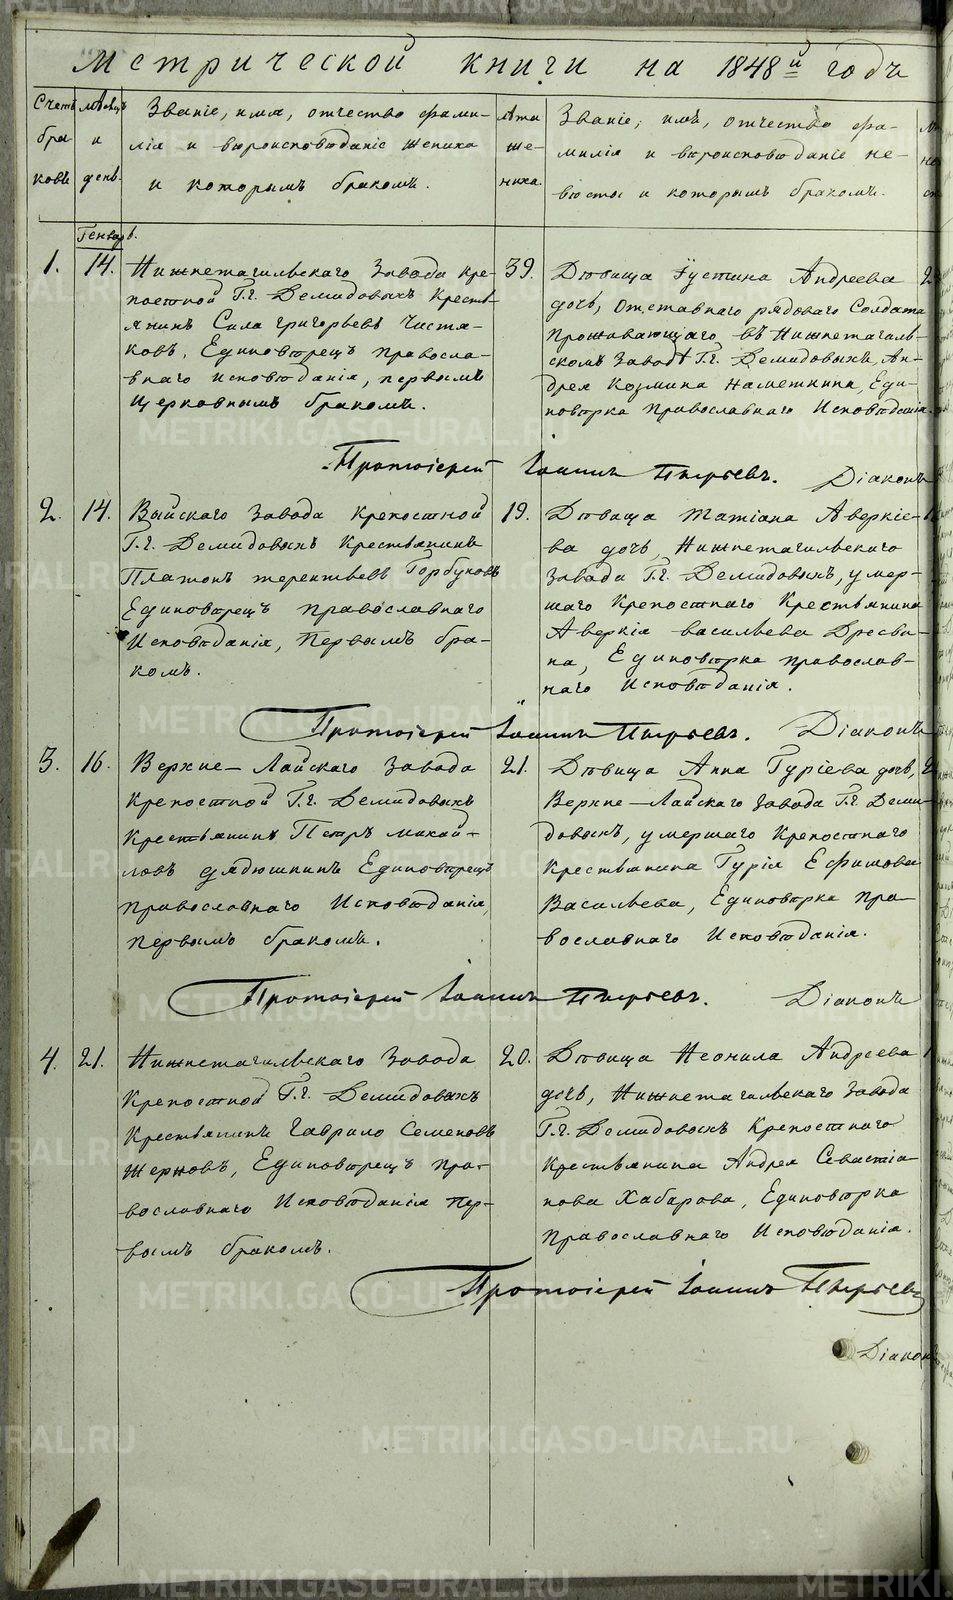 Метрической книги на 1848й годъ
Счетъ браковъ
Мѣсяцъ и день.
Званіе, имя, отчество фами-
лія и вѣроисповѣданіе жениха
и которымъ бракомъ.
Лѣта жениха.
Званіе, имя, отчество фа-
милія и вѣроисповѣданіе не-
вѣсты и которымъ бракомъ.
Генварь.
1. 14.
Нижнетагильскаго Завода кре-
постной Г.г. Демидовыхъ Кресть-
янинъ Сила Григорьевъ Чистя-
ковъ, Единовѣрецъ правосла-
внаго исповѣданія, первымъ
церковнымъ бракомъ.
39.
Дѣвица Іустина Андреева
дочь, Отставнаго рядоваго Солдата
Проживающаго въ Нижнетагиль-
скомъ Заводѣ Г.г. Демидовыхъ, Ан-
дрея Козмина Наметкина, Еди-
новѣрка православнаго Исповѣданія.
Протоіерей Іоаннъ Пырьевъ.
Діаконъ
2. 14.
Выйскаго Завода крепостной
Г.г. Демидовыхъ Крестьянинъ
Платонъ Терентьевъ Горбуновъ
Единовѣрецъ православнаго
Исповѣданія, Первымъ бра-
комъ.
19.
Дѣвица Татіана Аверкіе-
ва дочь, Нижнетагильскаго
Завода Г.г. Демидовыхъ, умер-
шаго Крепостнаго Крестьянина
Аверкія Васильева Дресви-
на, Единовѣрка православ-
наго Исповѣданія.
Протоіерей Іоаннъ Пырьевъ.
Діаконъ
3. 16.
Верхне-Лайскаго Завода
Крепостной Г.г. Демидовыхъ
Крестьянинъ Петръ Михай-
ловъ Дядюшкинъ Единовѣрецъ
православнаго Исповѣданія,
первымъ бракомъ.
21.
Дѣвица Анна Гуріева дочь,
Верхне-Лайскаго Завода Г.г. Деми-
довыхъ, умершаго Крепостнаго
Крестьянина Гурія Ефимова
Васильева, Единовѣрка пра-
вославнаго Исповѣданія.
Протоіерей Іоаннъ Пырьевъ.
Діаконъ
4. 21.
Нижнетагильскаго Завода
Крепостной Г.г. Демидовыхъ
Крестьянинъ Гаврило Семеновъ
Жерновъ, Единовѣрецъ пра-
вославнаго Исповѣданія пер-
вымъ бракомъ.
20.
Дѣвица Неонила Андреева
дочь, Нижнетагильскаго Завода
Г.г. Демидовыхъ Крепостнаго
Крестьянина Андрея Севастіа-
нова Хабарова, Единовѣрка
Православнаго Исповѣданія.
Протоіерей Іоаннъ Пырьевъ
Діаконъ
METRIKI.GASO-URAL.RU